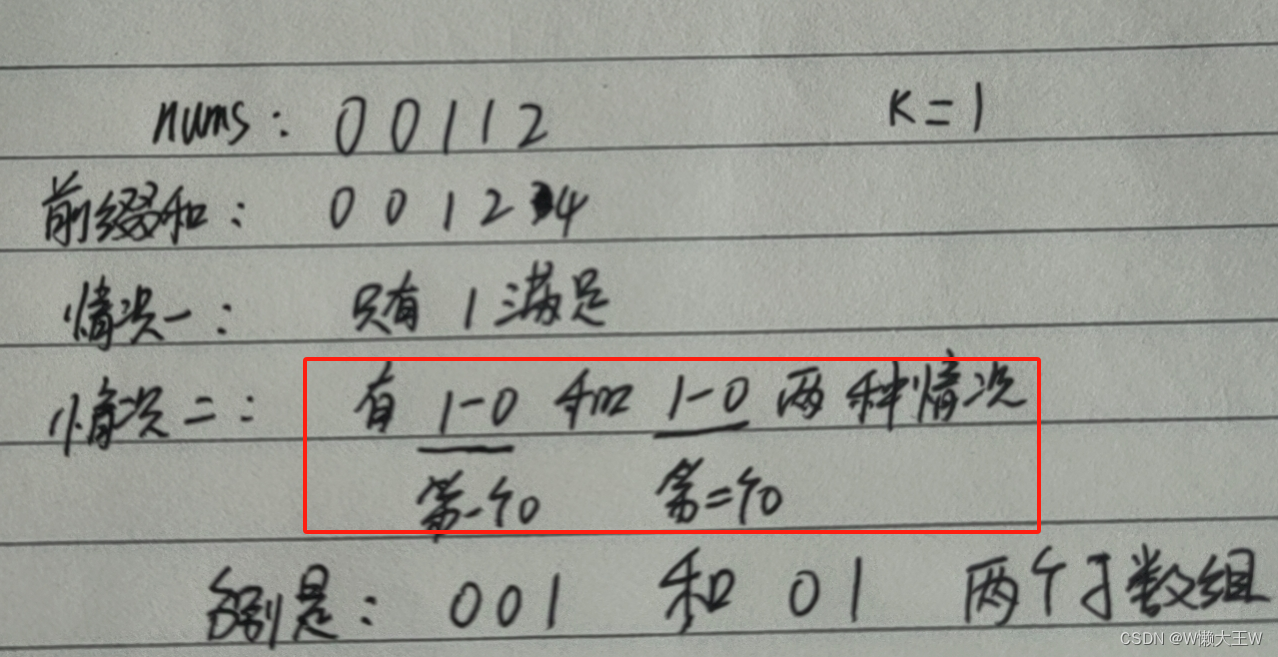 nums: 0 0 1 1 2 K=1
前缀和: 0 0 1 2 4
情况一: 只有 1 满足
情况二: 有 1-0 和 1-0 两种情况
第一个0 第二个0
分别是: 001 和 01 两个子数组
CSDN @W懒大王W